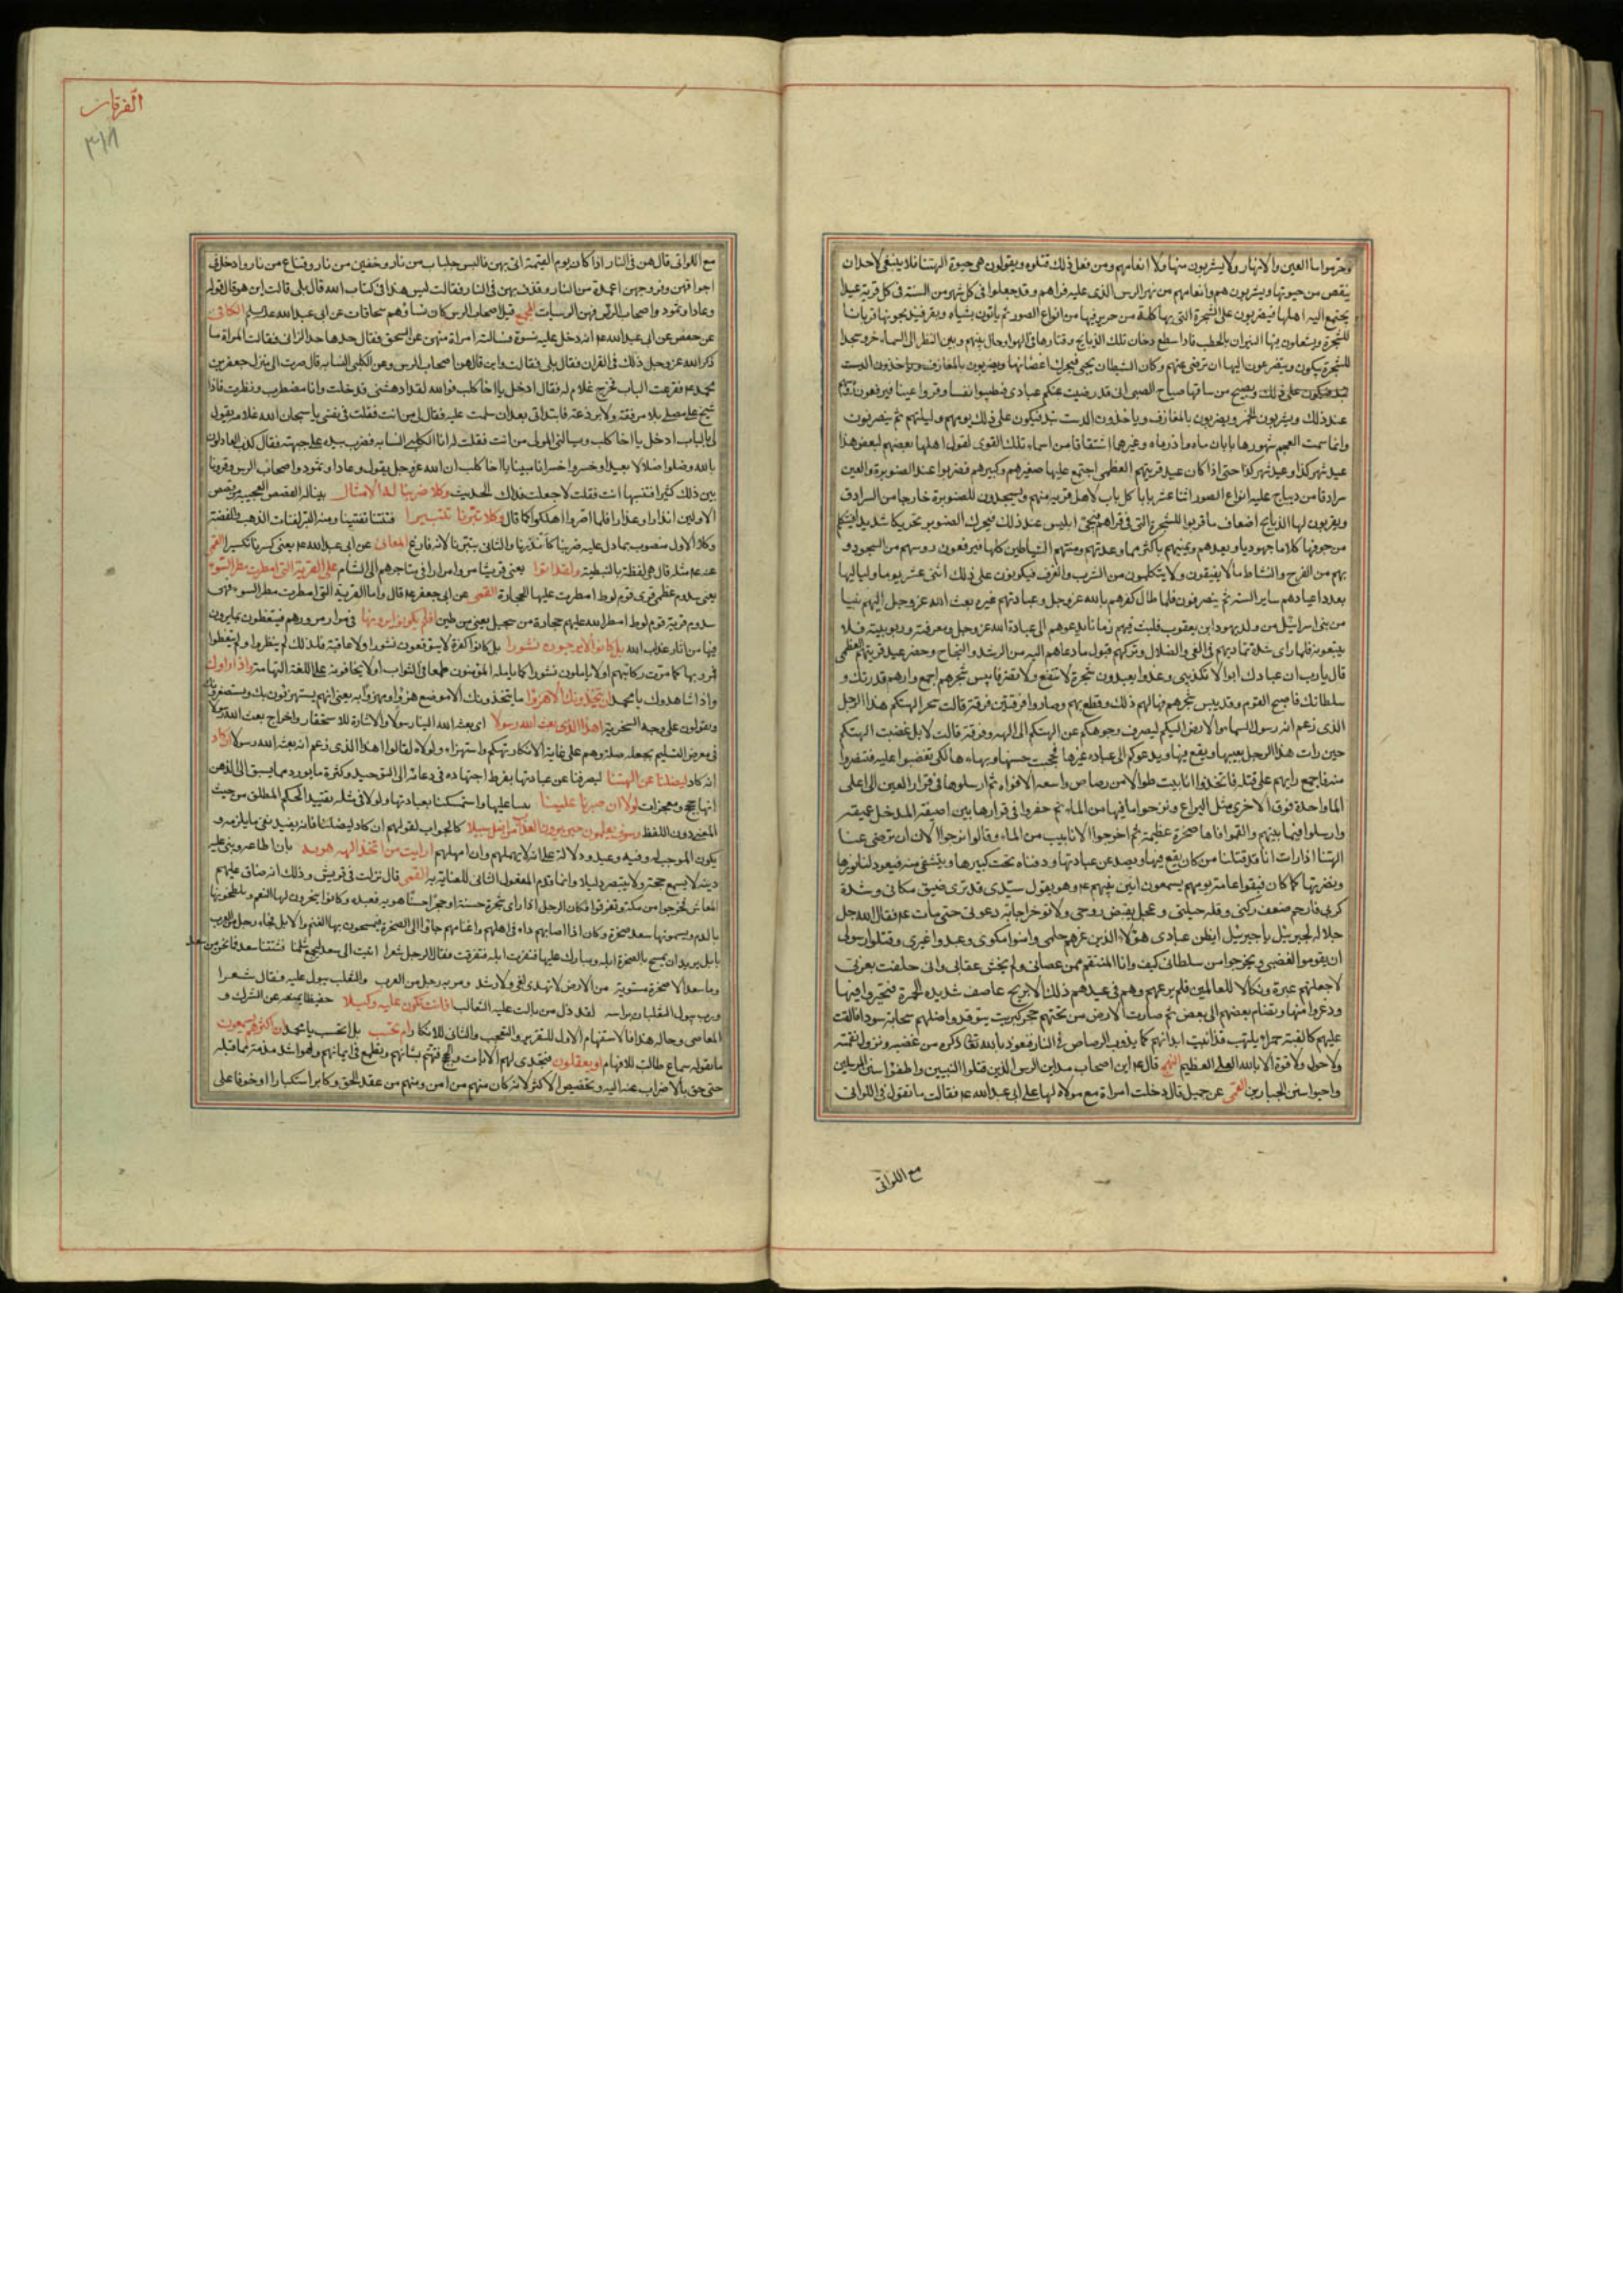 وحرموا ماء العين والانهار ولا يشربون منها ولا انعامهم ومن فعل ذلك قتلوه ويقولون هي حيوة الهتنا فلا ينبغي لاحد ان
ينقص من حيوتها ويشربون هم وانعامهم من نهر الرس الذي عليه قراهم وقد جعلوا في كل شهر من السنة في كل قرية عيدا
يجتمع اليه اهلها فيضربون على الشجرة التي بها كلة من حرير فيها من انواع الصور ثم ياتون بشياه وبقر فيذبحونها قربانا
للشجرة ويشعلون فيها النيران بالحطب فاذا سطع دخان تلك الذبايح وقتارها في الهوا وحال بينهم وبين النظر الى السماء خروا سجدا
للشجرة يبكون ويتضرعون اليها ان ترضى عنهم وكان الشيطان يجئ فيحرك اغصانها
ويصيح من ساقها صياح الصبي اني قد رضيت عنكم عبادي فطيبوا نفسا وقروا عينا فيرفعون
عند ذلك ويشربون الخمر ويضربون بالمعازف وياخذون الدست بند فيكون على ذلك يومهم وليلتهم ثم ينصرفون
وانما سمت العجم شهورها بابان ماه واذرماه وغيرهما اشتقاقا من اسماء تلك القرى لقول اهلها بعضهم لبعض هذا
عيد شهر كذا وعيد شهر كذا حتى اذا كان عيد قريتهم العظمى اجتمع عليها صغيرهم وكبيرهم فضربوا عند الصنوبرة والعين
سرادقا من ديباج عليه انواع الصور اثنا عشر بابا كل باب لاهل قرية منهم ويسجدون للصنوبرة خارجا من السرادق
ويقربون لها الذبايح اضعاف ما قربوا للشجرة التي في قراهم فيجئ ابليس عند ذلك فيحرك الصنوبر تحريكا شديدا فيتكلم
من جوفها كلاما جهوريا ويعدهم ويمنيهم باكثر مما وعدتهم ومنتهم الشياطين كلها فيرفعون روسهم من السجود و
بهم من الفرح والنشاط ما لا يفيقون ولا يتكلمون من الشرب والعزف فيكونون على ذلك اثنى عشر يوما ولياليها
بعدد اعيادهم ساير السنة ثم ينصرفون فلما طال كفرهم بالله عز وجل وعبادتهم غيره بعث الله عز وجل اليهم نبيا
من بني اسرائيل من ولد يهودا بن يعقوب فلبث فيهم زمانا يدعوهم الى عبادة الله عز وجل ومعرفته وربوبيته فلا
يتبعونه فلما راى شدة تماديهم في الغي والضلال وتركهم قبول ما دعاهم اليه من الرشد والنجاح وحضر عيد قريتهم العظمى
قال يا رب ان عبادك ابوا الا تكذيبي وغدوا يعبدون شجرة لا تنفع ولا تضر فايبس شجرهم اجمع وارهم قدرتك و
سلطانك فاصبح القوم وقد يبس شجرهم فهالهم ذلك وقطع بهم وصاروا فرقتين فرقة قالت سحر الهتكم هذا الرجل
الذي زعم انه رسول السماء والارض اليكم ليصرف وجوهكم عن الهتكم الى الهه وفرقة قالت لا بل غضبت الهتكم
حين رات هذا الرجل يعيبها ويقع فيها ويدعوكم الى عبادة غيرها فحجبت حسنها وبهاءها لكي تغضبوا عليه فتنتصروا
منه فاجمع رايهم على قتله فاتخذوا انابيب طوالا من رصاص واسعه الافواه ثم ارسلوها في قرار العين الى اعلى
الماء واحدة فوق الاخرى مثل البرابخ ونزحوا ما فيها من الماء ثم حفروا في قرارها بئرا ضيقة المدخل عميقة
وارسلوا فيها نبيهم والقموا فاها صخرة عظيمة ثم اخرجوا الانابيب من الماء وقالوا نرجوا الان ان ترضى عنا
الهتنا اذا رات انا قد قتلنا من كان يقع فيها ويصد عن عبادتها ودفناه تحت كبيرها ويتشفى منه فيعود لنا نورها
ونضرتها كما كان فبقوا عامة يومهم يسمعون انين نبيهم ع وهو يقول سيدي قد ترى ضيق مكاني وشدة
كربي فارحم ضعف ركني وقلة حيلتي وعجل بقبض روحي ولا توخر اجابة دعوتي حتى مات ع فقال الله جل
جلاله لجبرئيل يا جبرئيل ايظن عبادي هؤلاء الذين غرهم حلمي وامنوا مكري وعبدوا غيري وقتلوا رسولي
ان يقوموا لغضبي ويخرجوا من سلطاني كيف وانا المنتقم ممن عصاني ولم يخش عقابي واني حلفت بعزتي
لاجعلنهم عبرة ونكالا للعالمين فلم يرعهم وهم في عيدهم ذلك الا بريح عاصف شديدة الحمرة فتحيروا فيها
وذعروا منها وتضام بعضهم الى بعض ثم صارت الارض من تحتهم حجر كبريت يتوقد واظلتهم سحابة سودا فالقت
عليهم كالقبة جمرا يلتهب فذابت ابدانهم كما يذوب الرصاص في النار فنعوذ بالله تعالى ذكره من غضبه ونزول نقمته
ولا حول ولا قوة الا بالله العلي العظيم النهج قال ع اين اصحاب مداين الرس الذين قتلوا النبيين واطفئوا سنن المرسلين
واحيوا سنن الجبارين القمي عن جميل قال دخلت امراة مع مولاة لها على ابي عبد الله ع فقالت ما تقول في اللواتي
مع اللواتي
الفرقان
٣١٨
مع اللواتي قال هن في النار اذا كان يوم القيمة اتى بهن فالبس جلبابا من نار وخفين من نار وقناع من نار وادخل في
اجوافهن وفروجهن اعمدة من النار وقذف بهن في النار فقالت ليس هذا في كتاب الله قال بلى قالت اين هو قال قوله
وعادا وثمود واصحاب الرس فهن الرسيات المجمع قيل اصحاب الرس كان نساؤهم سحاقات عن ابي عبد الله عليه السلم الكافي
عن ابي عبد الله ع انه دخل عليه نسوة فسالته امراة منهن عن السحق فقال حدها حد الزاني فقالت المراة ما
ذكر الله عز وجل ذلك في القران فقال بلى فقالت واين قال هن اصحاب الرس وعن الكلبي النسابه قال صرت الى منزل جعفر بن
محمد ع فقرعت الباب فخرج غلام له فقال ادخل يا اخا كلب فوالله لقد ادهشني فدخلت وانا مضطرب ونظرت فاذا
شيخ على مصلى بلا مرفقة ولا برذعة فابتداني بعد ان سلمت عليه فقال لي من انت فقلت في نفسي يا سبحان الله غلامه يقول
لي بالباب ادخل يا اخا كلب ويسالني المولى من انت فقلت له انا الكلبي النسابه فضرب بيده على جبهته فقال كذب العادلون
بالله وضلوا ضلالا بعيدا وخسروا خسرانا مبينا يا اخا كلب ان الله عز وجل يقول وعادا وثمود واصحاب الرس وقرونا
بين ذلك كثيرا فتنسبها انت فقلت لا جعلت فداك الحديث وكلا ضربنا له الامثال بينا له القصص العجيبة من قصص
الاولين انذارا واعذارا فلما اصروا اهلكوا كما قال وكلا تبرنا تتبيرا فتتنا تفتيتا ومنه التبر لفتات الذهب والفضة
وكلا الاول منصوب بما دل عليه ضربنا كانذرنا والثاني بتبرنا لانه فارغ المعاني عن ابي عبد الله ع يعني كسرنا تكسيرا القمي
عنه ع مثله قال هي لفظة بالنبطية ولقد اتوا يعني قريشا مروا مرارا في متاجرهم الى الشام على القرية التي امطرت مطر السوء
يعني سدوم عظمى قرى قوم لوط امطرت عليها الحجارة القمي عن ابي جعفر ع قال واما القرية التي امطرت مطر السوء فهي
سدوم قرية قوم لوط امطر الله عليهم حجارة من سجيل يعني من طين افلم يكونوا يرونها في مرار مرورهم فيتعظون بما يرون
فيها من اثار عذاب الله بل كانوا لا يرجون نشورا بل كانوا كفرة لا يتوقعون نشورا ولا عاقبة فلذلك لم ينظروا ولم يتعظوا
فمروا بها كما مرت ركابهم او لا ياملون نشورا كما يامله المؤمنون طمعا في الثواب او لا يخافونه على اللغة التهامة واذا راوك
واذا شاهدوك يا محمد ان يتخذونك الا هزوا ما يتخذونك الا موضع هزؤ او مهزوا به يعني انهم يستهزئون بك ويستصغرونك
ويقولون على وجه السخرية اهذا الذي بعث الله رسولا اي بعثه الله الينا رسولا والاشارة للاستحقار واخراج بعث الله رسولا
في معرض التسليم بجعله صلة وهم على غاية الانكار تهكم واستهزاء ولولاه لقالوا اهذا الذي زعم انه بعثه الله رسولا ان كاد
انه كاد ليضلنا عن الهتنا ليصرفنا عن عبادتها بفرط اجتهاده في دعائه الى التوحيد وكثرة ما يورد مما يسبق الى الذهن
انها حجج ومعجزات لولا ان صبرنا عليها ثبتنا عليها واستمسكنا بعبادتها ولولا في مثله تقييد الحكم المطلق من حيث
المعنى دون اللفظ وسوف يعلمون حين يرون العذاب من اضل سبيلا كالجواب لقولهم ان كاد ليضلنا فانه يفيد نفي ما يلزمه و
يكون الموجب له وفيه وعيد ودلالة على انه لا يهملهم وان امهلهم ارايت من اتخذ الهه هويه بان اطاعه وبنى عليه
دينه لا يسمع حجة ولا يتبصر دليلا وانما قدم المفعول الثاني للعناية به القمي قال نزلت في قريش وذلك انه ضاق عليهم
المعاش فخرجوا من مكة وتفرقوا فكان الرجل اذا راى شجرة حسنة او حجرا حسنا هويه فعبده وكانوا ينحرون لها النعم ويلطخونها
بالدم ويسمونها سعد صخرة وكان اذا اصابهم داء في اهلهم واغنامهم جاؤا الى الصخرة فيمسحون بها الغنم والابل فجاء رجل من العرب
بابل يريد ان يمسح بالصخرة ابله ويبارك عليها فنفرت ابله فتفرقت فقال الرجل شعرا اتيت الى سعد ليجمع شملنا فشتتنا سعد فما نحن من سعد
وما سعد الا صخرة مستوية من الارض لا تهدي لغي ولا رشد ومر به رجل من العرب والثعلب يبول عليه فقال شعرا
ورب يبول الثعلبان براسه لقد ذل من بالت عليه الثعالب افانت تكون عليه وكيلا حفيظا تمنعه عن الشرك و
المعاصي وحاله هذا فالاستفهام الاول للتقرير والتعجب والثاني للانكار ام تحسب بل اتحسب يا محمد ان اكثرهم يسمعون
ما تقوله سماع طالب للافهام او يعقلون فتجدي لهم الايات والحجج فتهتم بشانهم وتطمع في ايمانهم وهو اشد مذمة مما قبله
حتى حق بالاضراب عنه اليه وتخصيص الاكثر لانه كان منهم من امن ومنهم من عقد الحق وكابر استكبارا او خوفا على